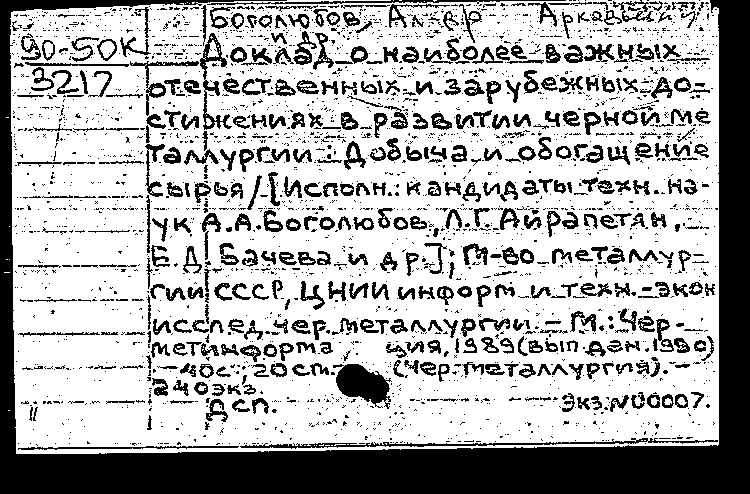 Боголюбов, Аркадьевич
и др.
90-50к Доклад о наиболее важных
3217 отечественных и зарубежных до-
стижениях в развитии черной ме
таллургии : Добыча и обогащение
сырья / [Исполн.: кандидаты техн. на-
ук А.А.Боголюбов, Л.Г.Айрапетян,
Е.Д. Бачева и др.]; М-во металлур-
гии СССР, ЦНИИ информ. и техн.-экон
исслед. чер. металлургии. - М.: Чер-
метинформация, 1989 (вып. дан. 1990)
- 40с.; 20см. - (Чер. металлургия). -
240экз.
Дсп. Экз.N00007.